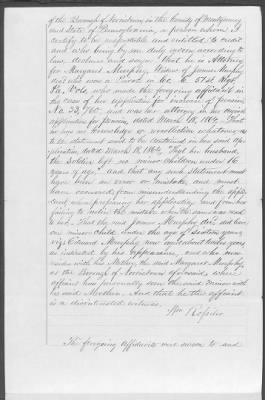 of the Borough of Norristown in the County of Montgomery
and State of Pennsylvania, a person whom I
certify to be respectable and entitled to credit
and who being by me duly sworn according to
law, declares and says: That he is Attorney
for Margaret Murphy, Widow of James Murphy
dec'd who was a Private in Co. 51st Regt.
Pa. Vols, who made the foregoing affidavit in
the case of her application for increase of pension
No. and was her attorney in her original
application for pension, dated March 18, 1864. That
he has no knowledge or recollection whatever as
to the statement said to be contained in her said ap-
plication dated March 18, 1864, That her husband,
the Soldier left no minor children under 16
years of age," and that any such statement must
have been an error or mistake, and must
have occurred from misunderstanding the appli-
cant when preparing her application and from her
failing to notice the mistake when the same was read
to her. That the said James Murphy did leave
one minor child under the age of sixteen years
viz: Edward Murphy now aged about twelve years
as indicated by his appearance, and who now
resides with his Mother, the said Margaret Murphy
at the Borough of Norristown aforesaid, where
affiant has personally seen the said minor with
his said Mother. And that he this affiant
is a disinterested witness.
Wm
The foregoing Affidavits was sworn to and